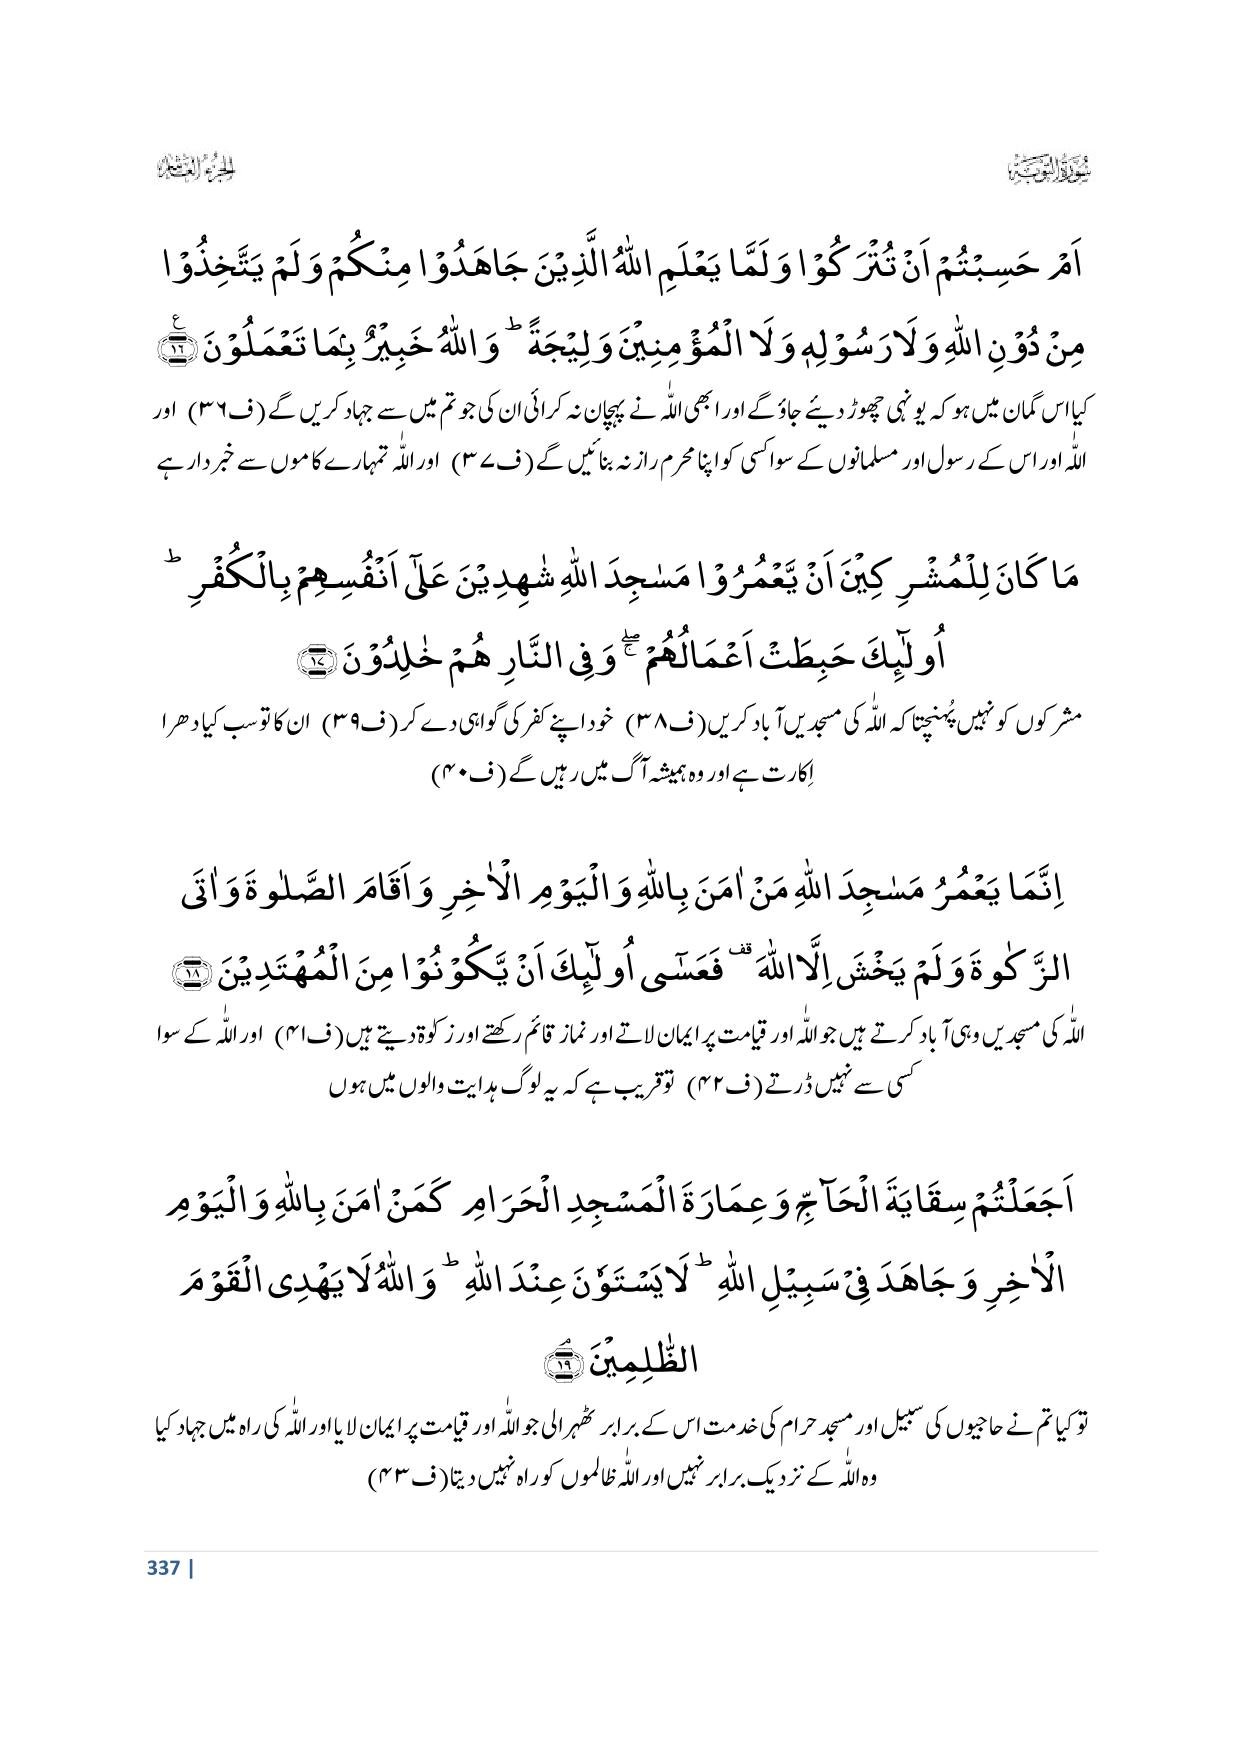 سُوْرَةُ التَّوْبَة
الجزء العاشر
اَمْ حَسِبْتُمْ اَنْ تُتْرَكُوْا وَ لَمَّا یَعْلَمِ اللّٰهُ الَّذِیْنَ جَاهَدُوْا مِنْكُمْ وَ لَمْ یَتَّخِذُوْا
مِنْ دُوْنِ اللّٰهِ وَ لَا رَسُوْلِهٖ وَ لَا الْمُؤْمِنِیْنَ وَلِیْجَةًؕ وَ اللّٰهُ خَبِیْرٌۢ بِمَا تَعْمَلُوْنَ ﴿۱۶﴾ ع
کیا اس گمان میں ہو کہ یونہی چھوڑ دیئے جاؤ گے اور ابھی اللہ نے پہچان نہ کرائی ان کی جو تم میں سے جہاد کریں گے (ف۳۶) اور
اللہ اور اس کے رسول اور مسلمانوں کے سوا کسی کو اپنا محرم راز نہ بنائیں گے (ف۳۷) اور اللہ تمہارے کاموں سے خبردار ہے
مَا كَانَ لِلْمُشْرِكِیْنَ اَنْ یَّعْمُرُوْا مَسٰجِدَ اللّٰهِ شٰهِدِیْنَ عَلٰۤی اَنْفُسِهِمْ بِالْكُفْرِؕ
اُولٰٓىِٕكَ حَبِطَتْ اَعْمَالُهُمْ ۚۖ وَ فِی النَّارِ هُمْ خٰلِدُوْنَ ﴿۱۷﴾
مشرکوں کو نہیں پہُنچتا کہ اللہ کی مسجدیں آباد کریں (ف۳۸) خود اپنے کفر کی گواہی دے کر (ف۳۹) ان کا تو سب کیا دھرا
اِکارت ہے اور وہ ہمیشہ آگ میں رہیں گے (ف۴۰)
اِنَّمَا یَعْمُرُ مَسٰجِدَ اللّٰهِ مَنْ اٰمَنَ بِاللّٰهِ وَ الْیَوْمِ الْاٰخِرِ وَ اَقَامَ الصَّلٰوةَ وَ اٰتَی
الزَّكٰوةَ وَ لَمْ یَخْشَ اِلَّا اللّٰهَ قف فَعَسٰۤی اُولٰٓىِٕكَ اَنْ یَّكُوْنُوْا مِنَ الْمُهْتَدِیْنَ ﴿۱۸﴾
اللہ کی مسجدیں وہی آباد کرتے ہیں جو اللہ اور قیامت پر ایمان لاتے اور نماز قائم رکھتے اور زکوٰۃ دیتے ہیں (ف۴۱) اور اللہ کے سوا
کسی سے نہیں ڈرتے (ف۴۲) تو قریب ہے کہ یہ لوگ ہدایت والوں میں ہوں
اَجَعَلْتُمْ سِقَایَةَ الْحَآجِّ وَ عِمَارَةَ الْمَسْجِدِ الْحَرَامِ كَمَنْ اٰمَنَ بِاللّٰهِ وَ الْیَوْمِ
الْاٰخِرِ وَ جَاهَدَ فِیْ سَبِیْلِ اللّٰهِؕ لَا یَسْتَوٗنَ عِنْدَ اللّٰهِؕ وَ اللّٰهُ لَا یَهْدِی الْقَوْمَ
الظّٰلِمِیْنَ ۘ ﴿۱۹﴾
تو کیا تم نے حاجیوں کی سبیل اور مسجد حرام کی خدمت اس کے برابر ٹھہرالی جو اللہ اور قیامت پر ایمان لایا اور اللہ کی راہ میں جہاد کیا
وہ اللہ کے نزدیک برابر نہیں اور اللہ ظالموں کو راہ نہیں دیتا (ف۴۳)
337 |